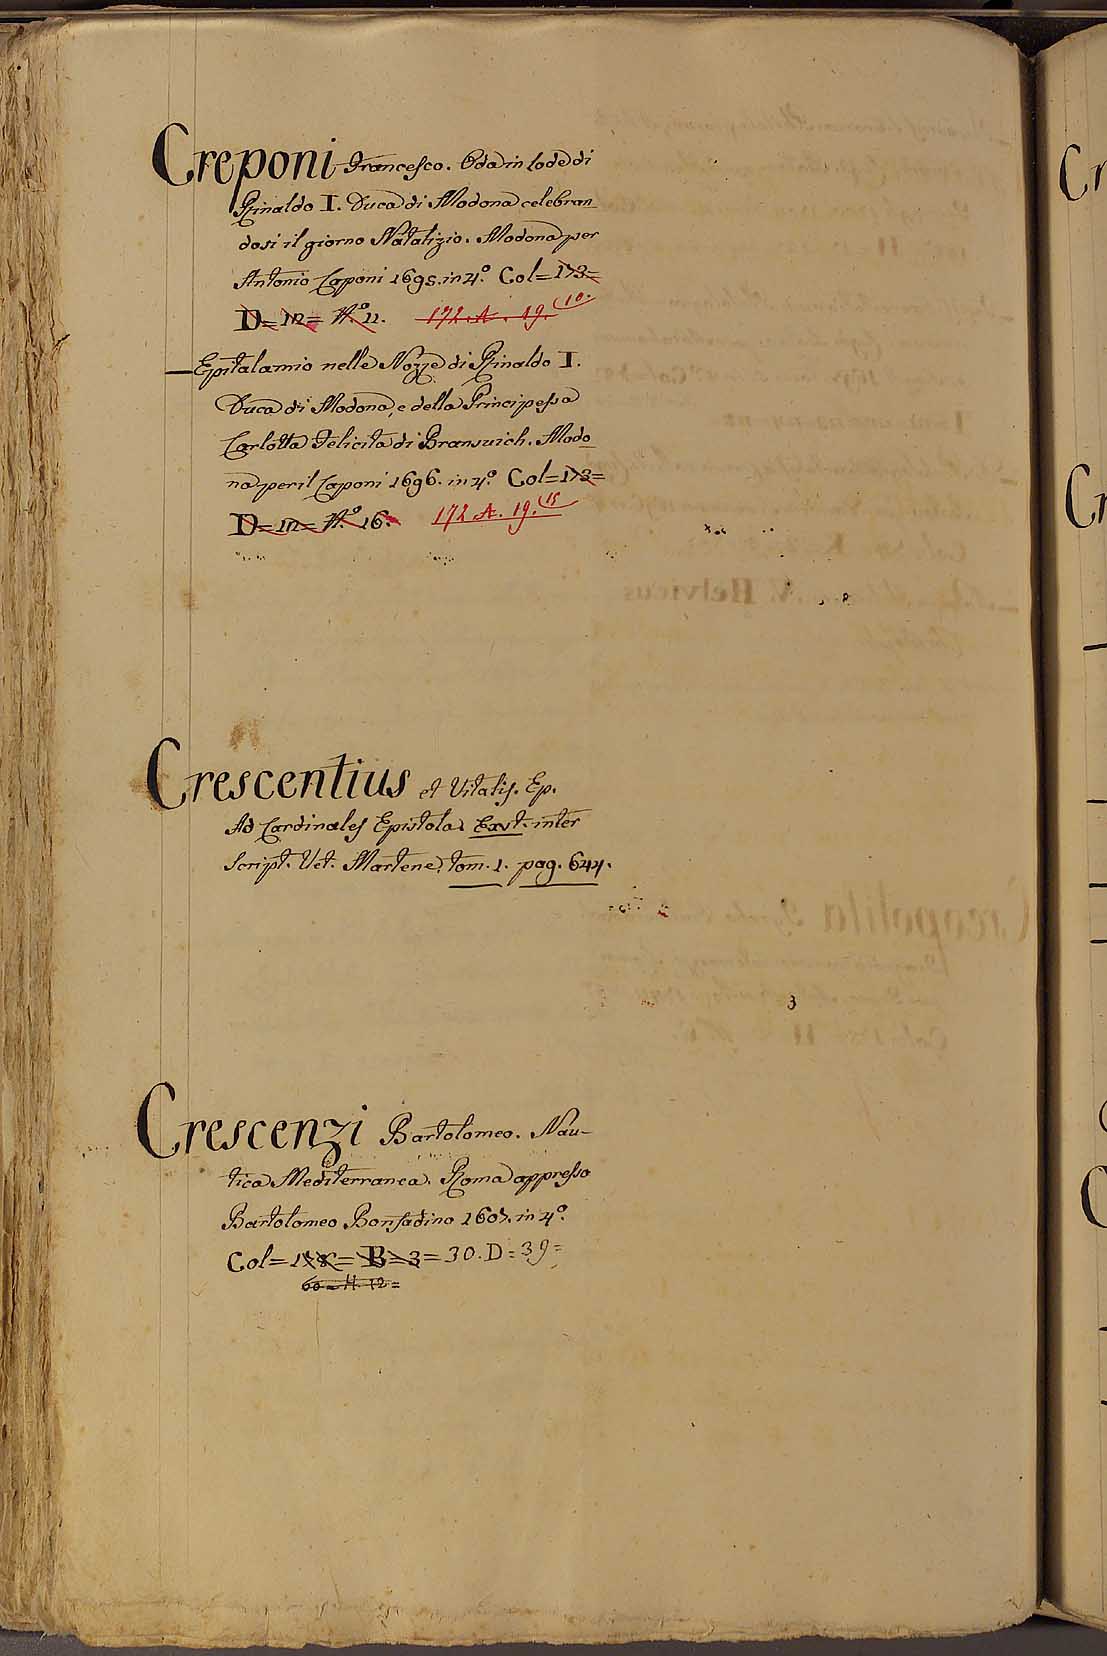 Creponi Francesco. Oda in lode di
Rinaldo I. Duca di Modona celebran_
dosi il giorno Natalizio. Modona per
Antonio Caponi 1695. in 4.º Col=173=
D=m= N.º 11. 172. A. 19. 10.
_Epitalamio nelle Nozze di Rinaldo I.
Duca di Modona, e della Principessa
Carlotta Felicita di Bransuich. Modo_
na per il Caponi 1696. in 4.º Col=173=
D=m= N.º 16. 172 A. 19. 15
Crescentius et Vitalis. Ep.
Ad Cardinales Epistola. Exst. inter
Script. Vet. Martene. tom. 1. pag. 644.
Crescenzi Bartolomeo. Nau-
tica Mediterranea. Roma appresso
Bartolomeo Bonfadino 1607. in 4.º
Col= = B=3=30.D=39=
60=H.12=